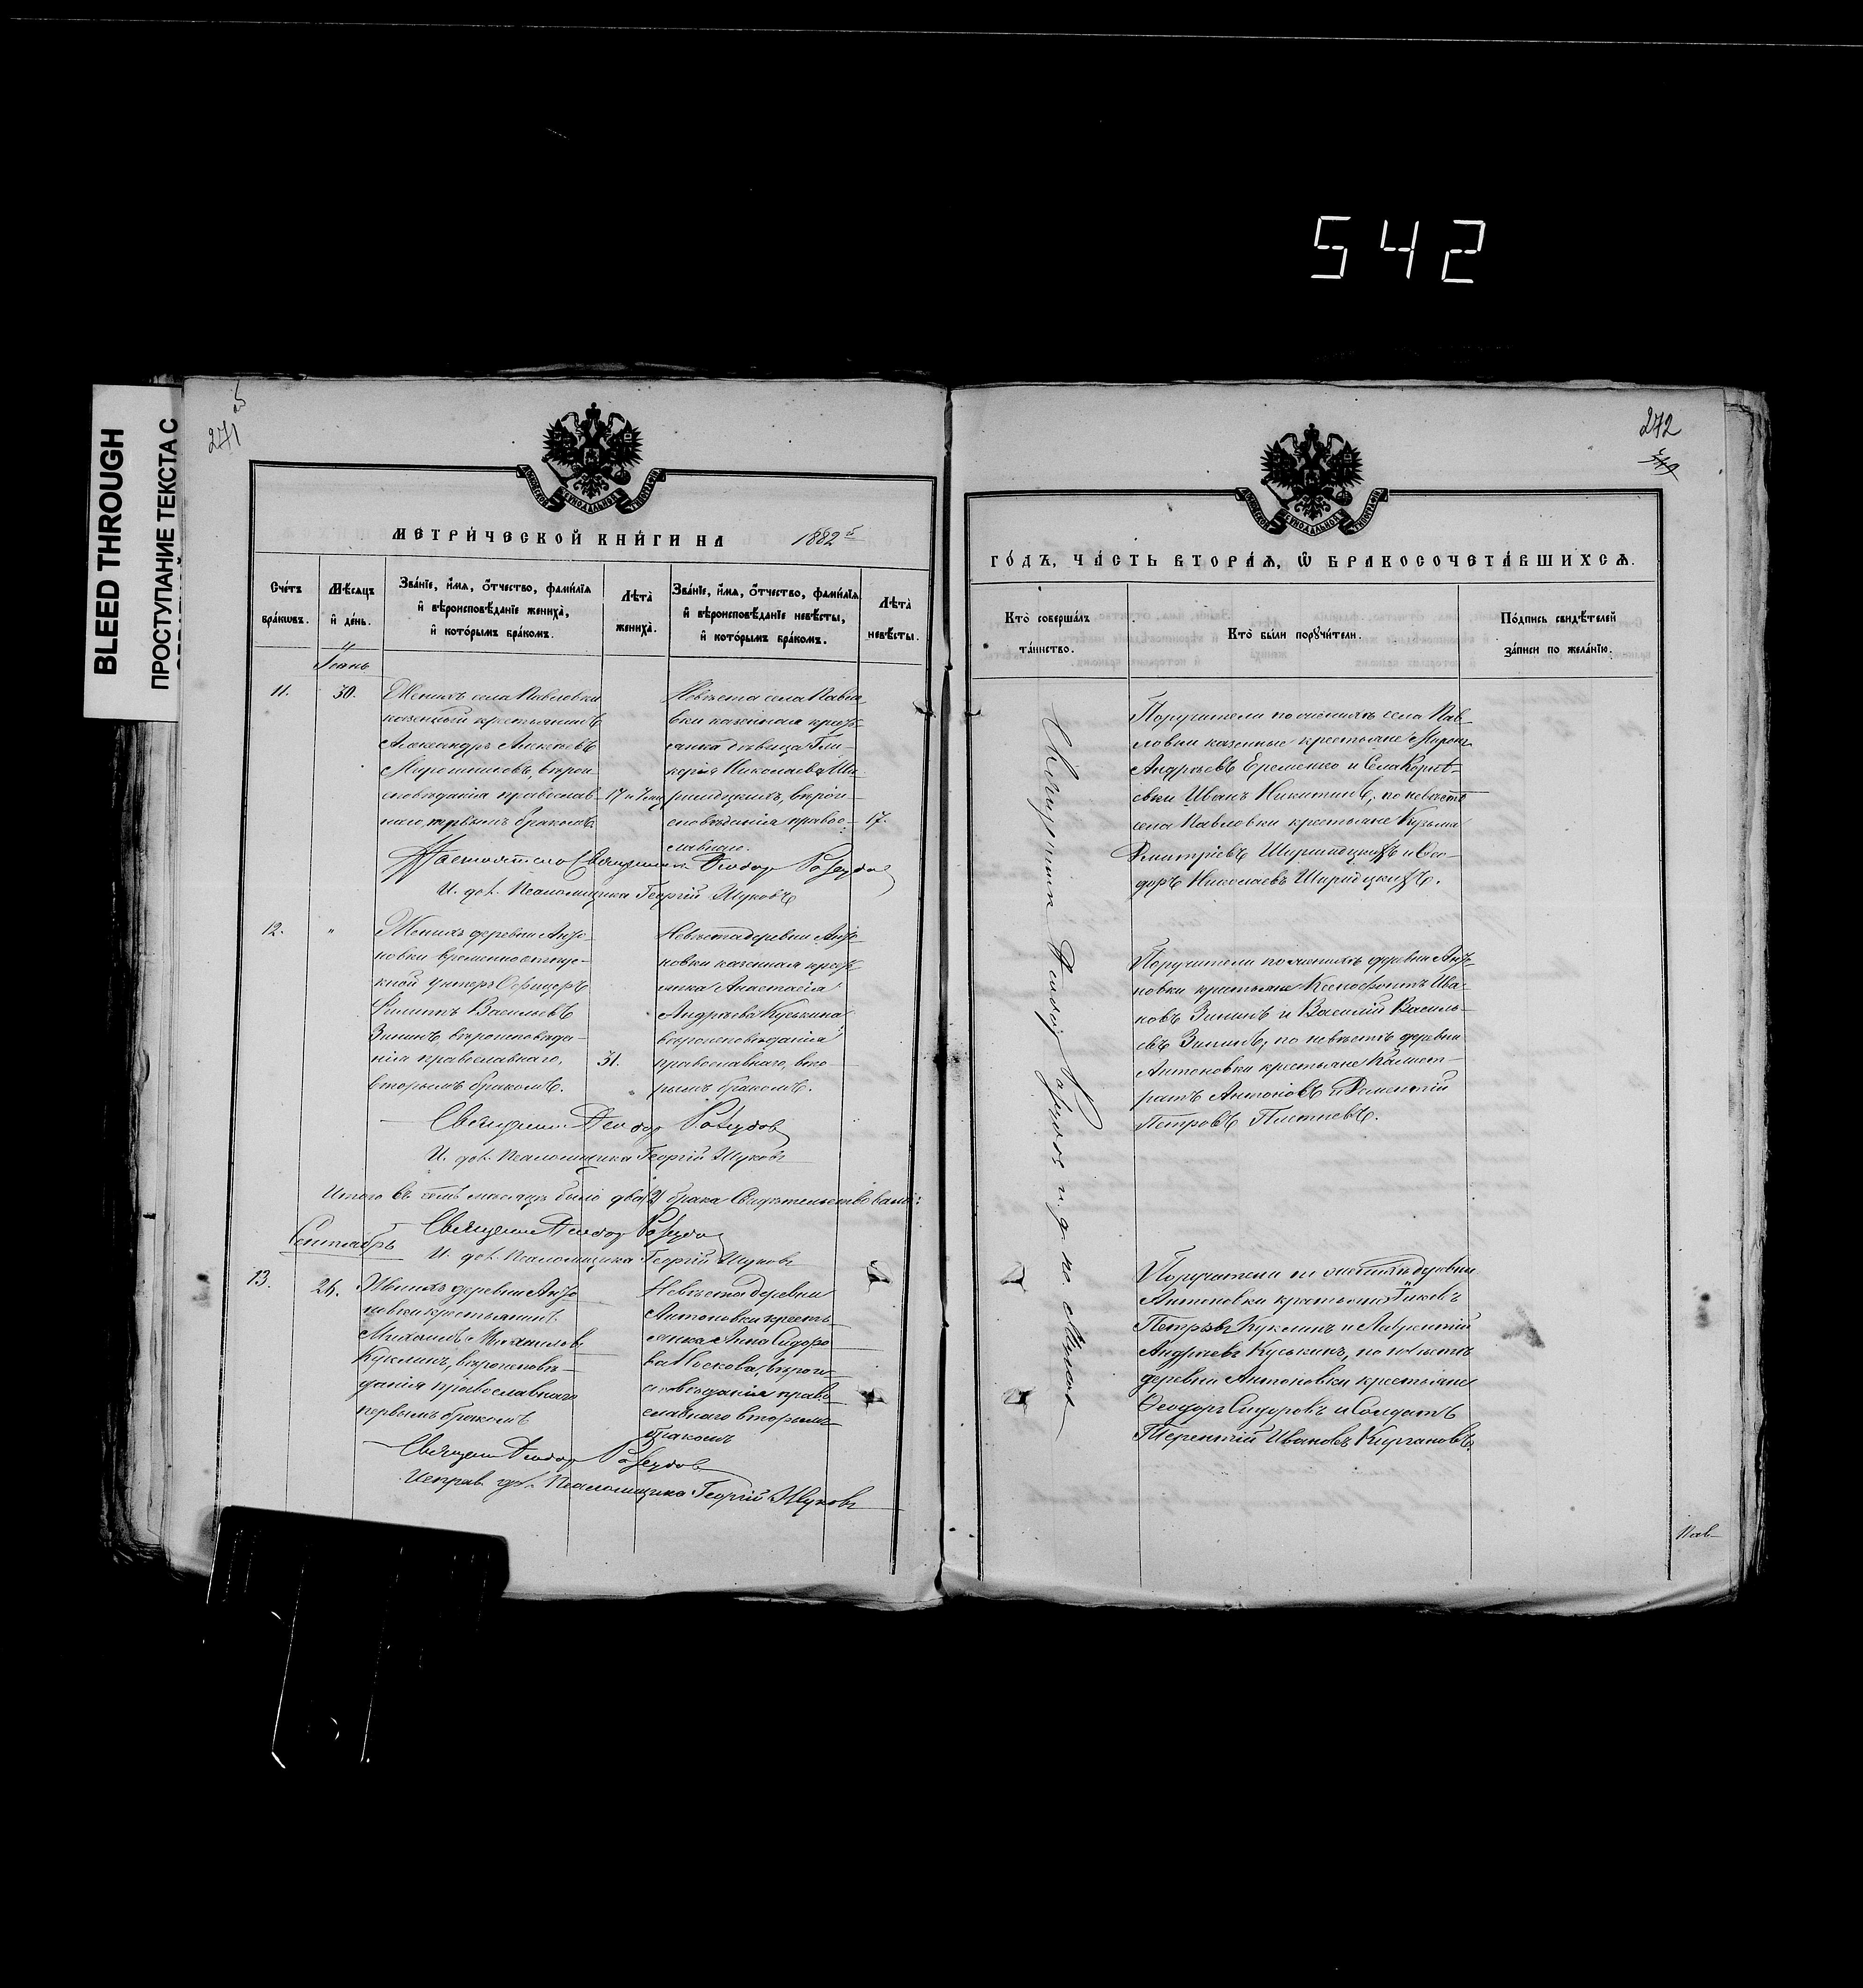 542
BLEED THROUGH
ПРОСТУПАНИЕ ТЕКСТА С
271
272
МЕТРИ́ЧЕСКОЙ КНИ́ГИ НА 1882
ГО́ДЪ, ЧА́СТЬ ВТОРА́Я, Ѡ БРАКОСОЧЕТА́ВШИХСЯ.
Сче́тъ бра́ковъ.
Мѣ́сяцъ и де́нь.
Зва́нїе, и́мя, о́тчество, фами́лїя и вѣроисповѣ́данїе жениха̀, и кото́рымъ бра́комъ.
Лѣта̀ жениха̀.
Зва́нїе, и́мя, о́тчество, фами́лїя и вѣроисповѣ́данїе невѣ́сты, и кото́рымъ бра́комъ.
Лѣта̀ невѣ́сты.
Кто̀ соверша́лъ та́инство.
Кто̀ бы́ли поручи́тели.
По́дпись свидѣ́телей за́писи по жела́нїю.
11.
30.
Женихъ села Павловки
казенный крестьянинъ
Александръ Алексѣевъ
Мирошниковъ, вѣрои-
сповѣданія православ-
наго, первымъ бракомъ.
17 и 7 мѣс
Невѣста села Павло
вки казенная кресть
янка дѣвица Гли-
керія Николаева Ши-
ридцкихъ, вѣрои-
сповѣданія правос-
лавнаго.
17.
Священникъ Ѳеодор
И. дол. Псаломщика Георгій Жуковъ
12.
"
Женихъ деревни Анто-
новки временноотпус-
кной унтеръ Офицеръ
Филиппъ Васильевъ
Зининъ, вѣроисповѣда-
нія православнаго,
вторымъ бракомъ.
31.
Невѣста деревни Анто
новки казенная кресть
янка Анастасія
Андреева Куськина
вѣроисповѣданія
православнаго, вто-
рымъ бракомъ.
Священник Ѳеодор
И. дол. Псаломщика Георгій Жуковъ
Итого въ семъ мѣсяцѣ было два (2) брака Свидѣтельствовали:
Священник Ѳеодор
И. дол. Псаломщика Георгій Жуковъ
Сентябрь
13.
26.
Женихъ деревни Анто
новки крестьянинъ
Михаилъ Михаиловъ
Куклинъ, вѣроисповѣ-
данія православнаго
первымъ бракомъ
Невѣста деревни
Антоновки кресть
янка Анна Сидоро
ва Носкова, вѣрои-
сповѣданія право
славнаго вторымъ
бракомъ
Священ Ѳеодор
Исправ. дол. Псаломщика Георгій Жуковъ
Поручители по женихѣ села Пав-
ловки казенные крестьяне Миронъ
Андреевъ Еременко и Села Корнѣ-
евки Иванъ Никитинъ; по невѣстѣ
села Павловки крестьяне Кузьма
Дмитріевъ Ширидцкихъ и Ѳео-
доръ Николаевъ Ширидцкихъ.
Поручители по женихѣ деревни Анто
новки крестьяне Ксенофонтъ Ива-
новъ Зининъ и Василій Василь-
евъ Зининъ, по невѣстѣ деревни
Антоновки крестьяне Калист-
ратъ Антоновъ и Дементій
Петровъ
Поручители по женихѣ деревни
Антоновки крестьяне
Петръ Куклинъ и Лаврентій
Андреевъ Куськинъ, по невѣстѣ
деревни Антоновки крестьяне
Ѳеодоръ Сидоровъ и Солдатъ
Терентій Ивановъ Кургановъ.
Пав-